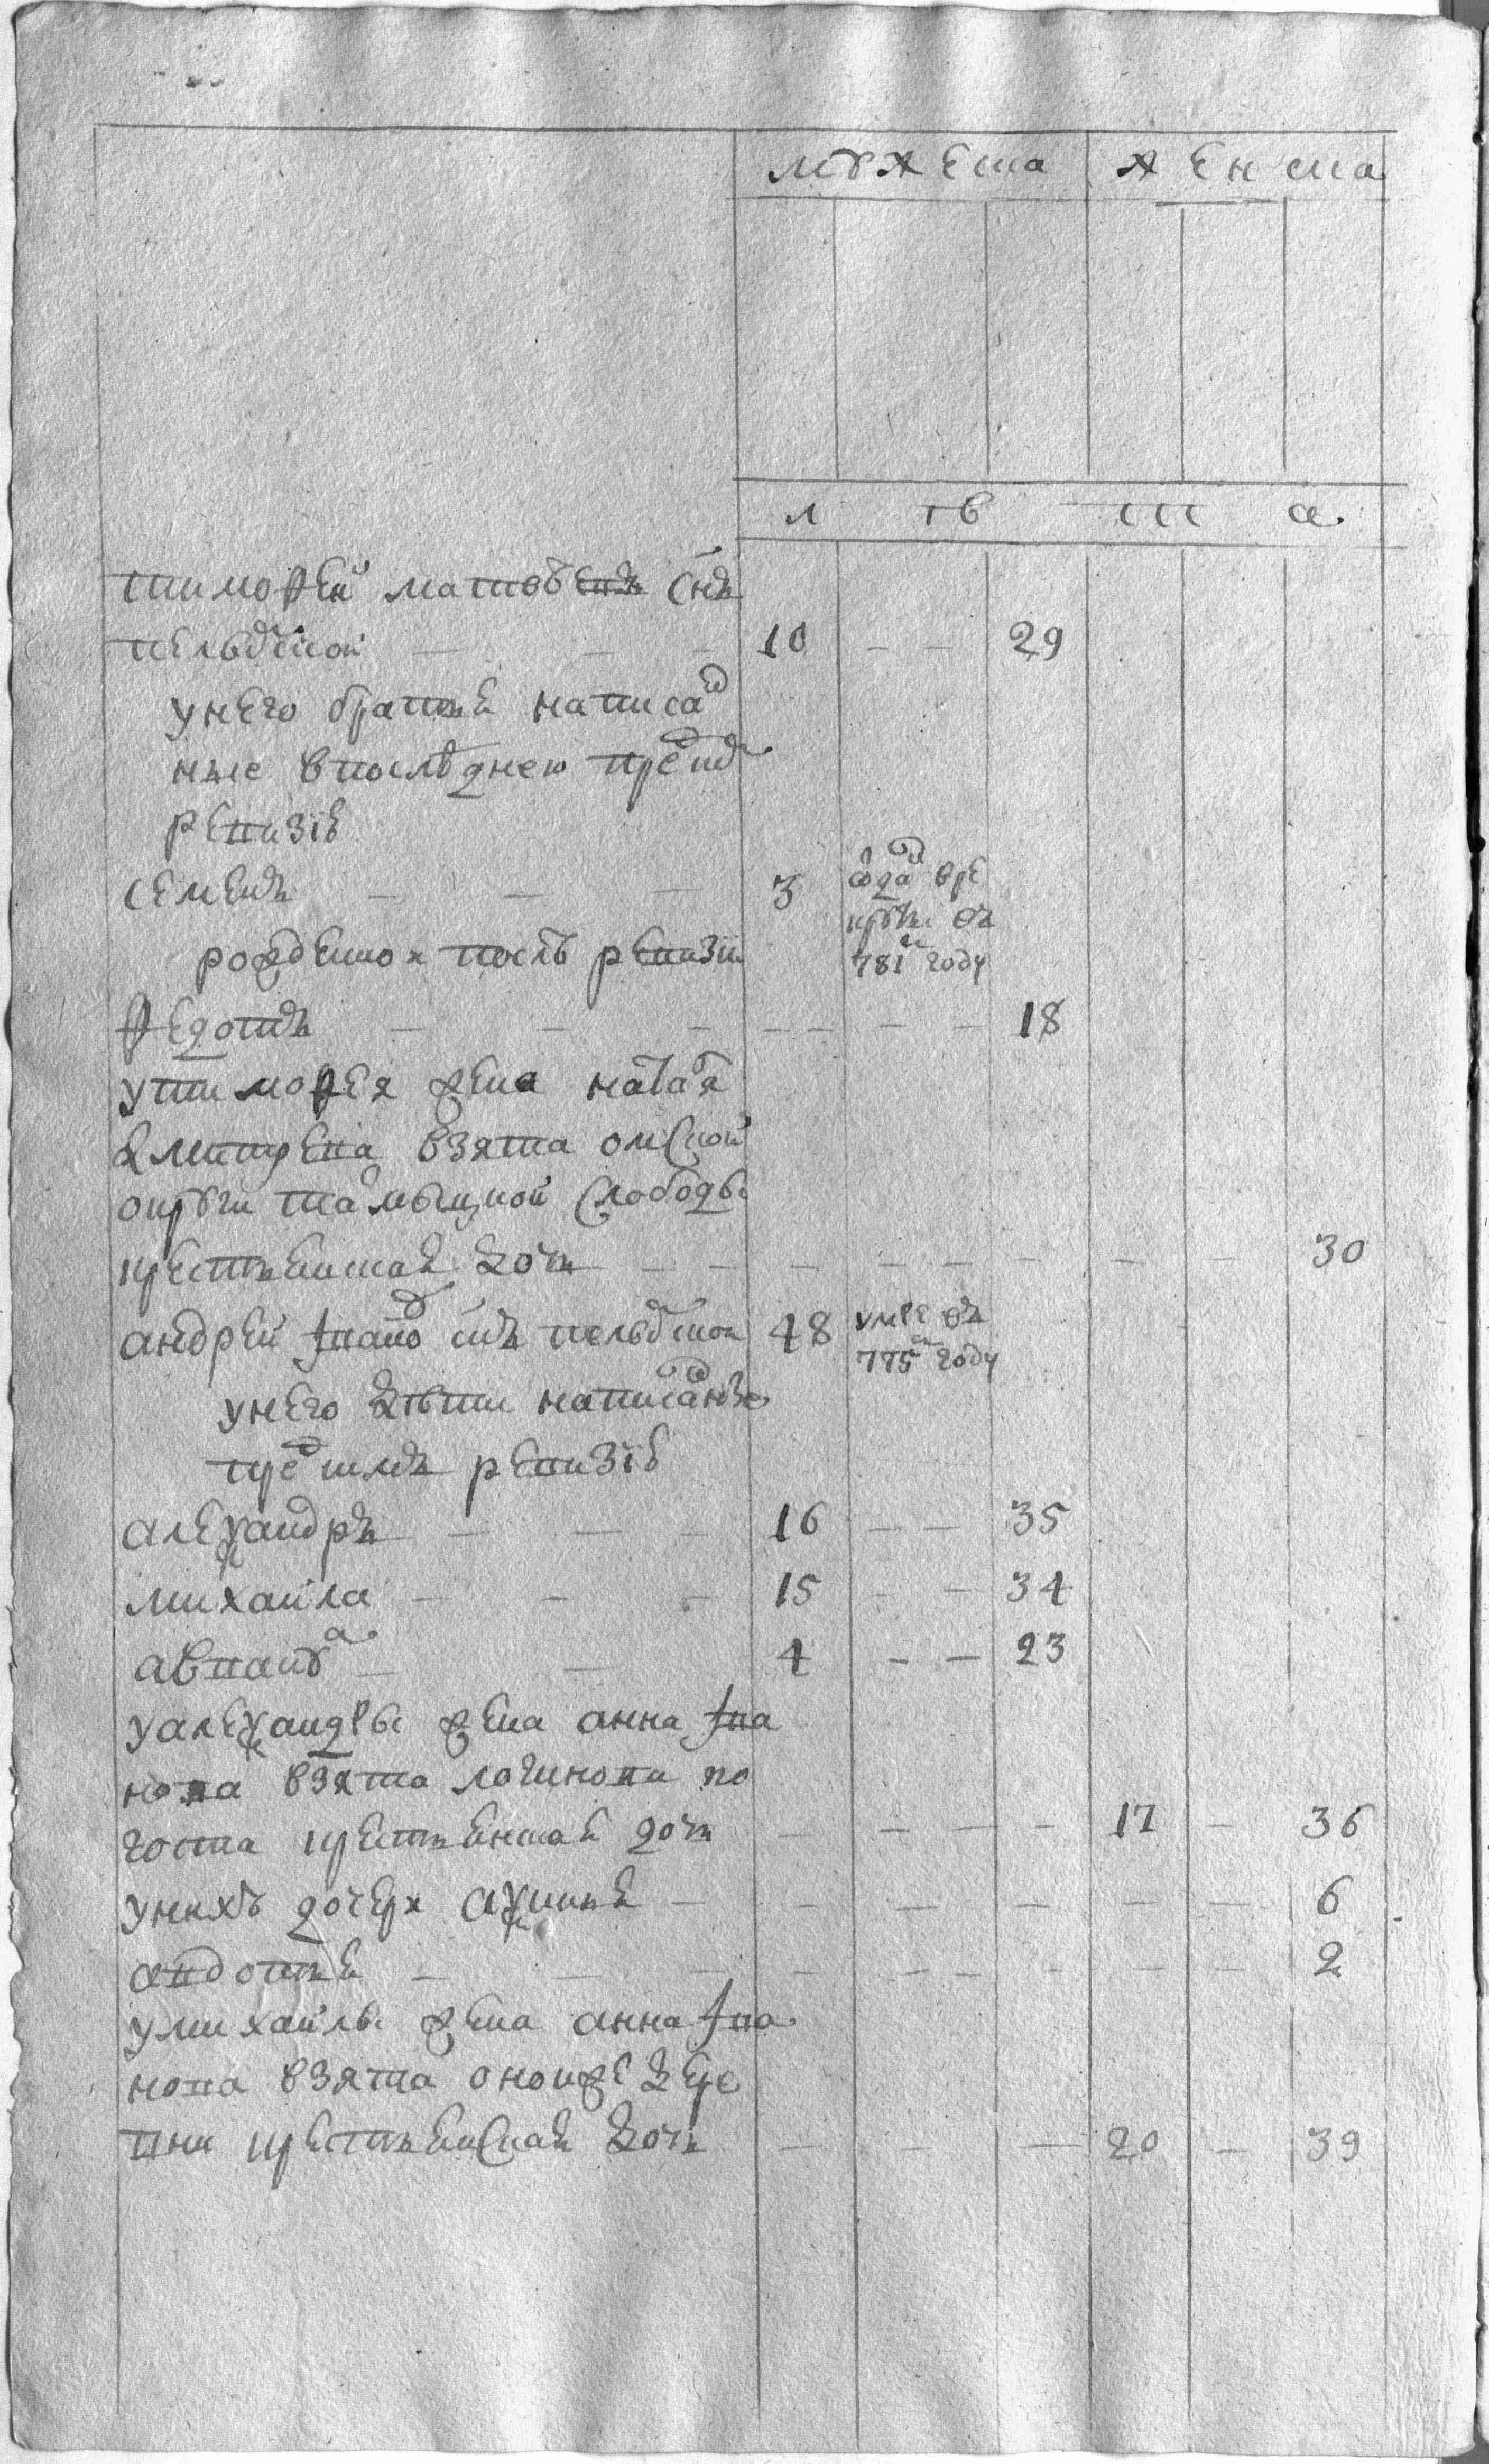 мужеска женска
лѣта
тимофей матвѣевъ снъ
пельскои — — — 10 — — 29
у него братья написан
ные в последнею пред
ревизiѣ
семенъ — — — 3 отдан в ре
круты въ
781м году
рожденноя послѣ ревизiи
федотъ — — — — — — — 18
у тимофея жена наталя
дмитрева взята омской
округи слободы
крестьянская дочь — — — — — — — — 30
андрей иванов снъ пельскои 48 умре въ
775м году
у него дѣти написанные
пред симъ ревизiѣ
алеѯандръ — — — 16 — — 35
михаила — — — 15 — — 34
а — — 4 — — 23
у алеѯандры жена анна ива
нова взята логинова по
госта крестьянская дочь — — — — 17 — 36
у нихъ дочеря аѯинья — — — — — — — 6
авдотья — — — — — — — — — 2
у михаилы жена анна ива
нова взята оной же дере
вни крестьянская дочь — — — 20 — 39